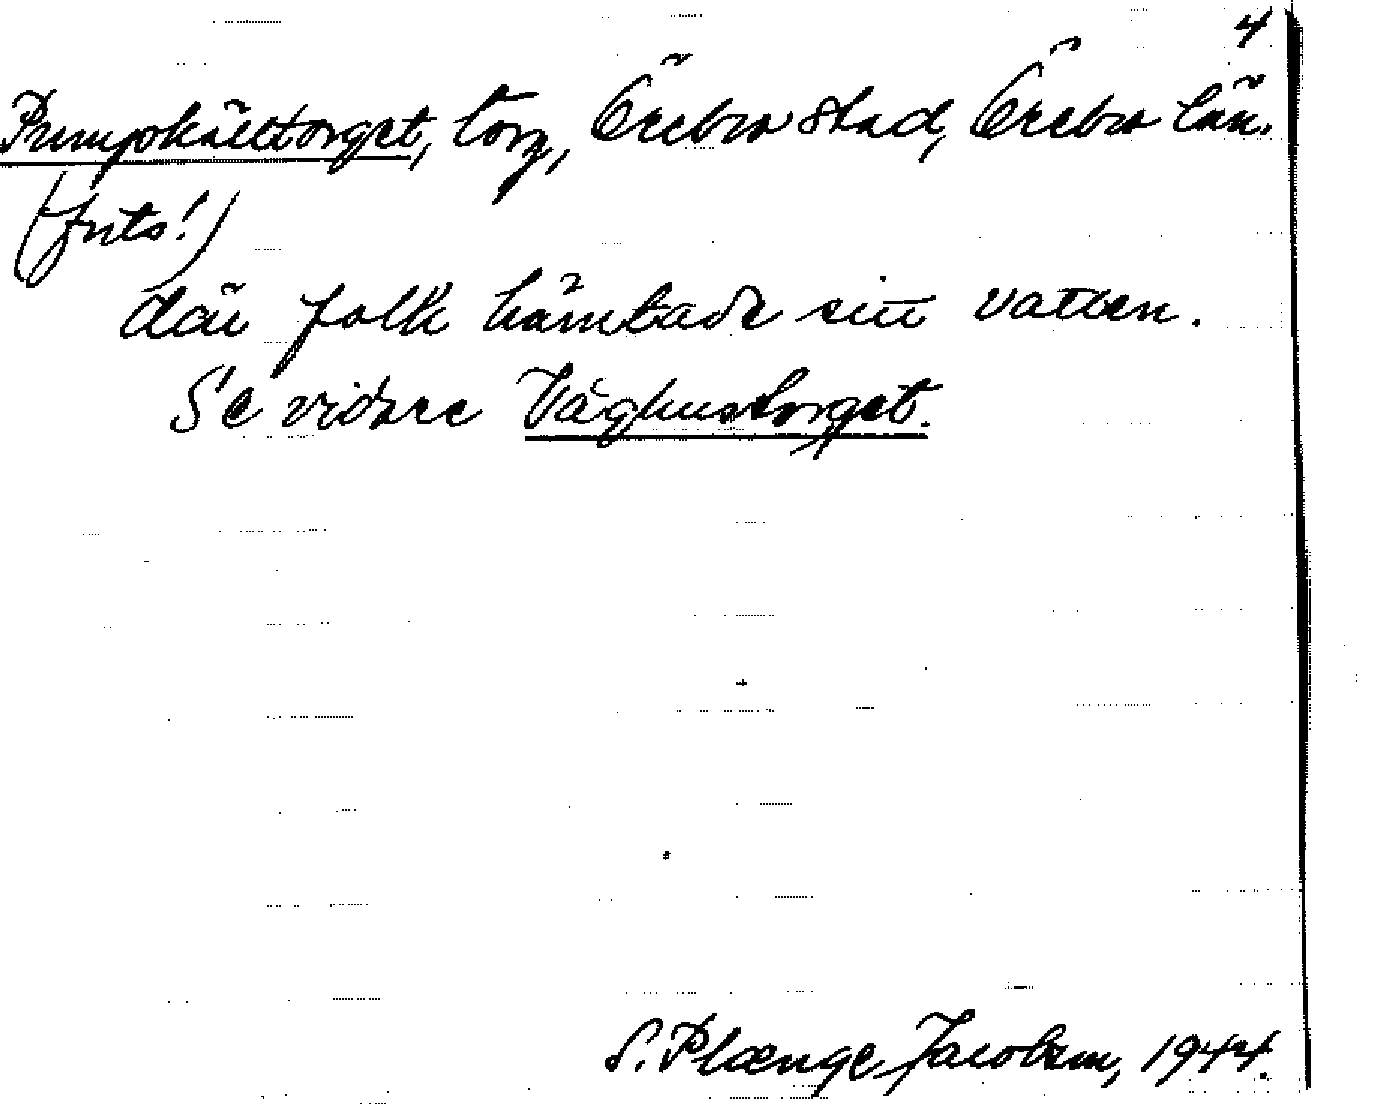 4
Pumpkälltorget, torg, Örebro stad, Örebro län.
(forts!)
där folk hämtade sitt vatten.
Se vidare Våghustorget.
S. Plænge Jacobson, 1944.